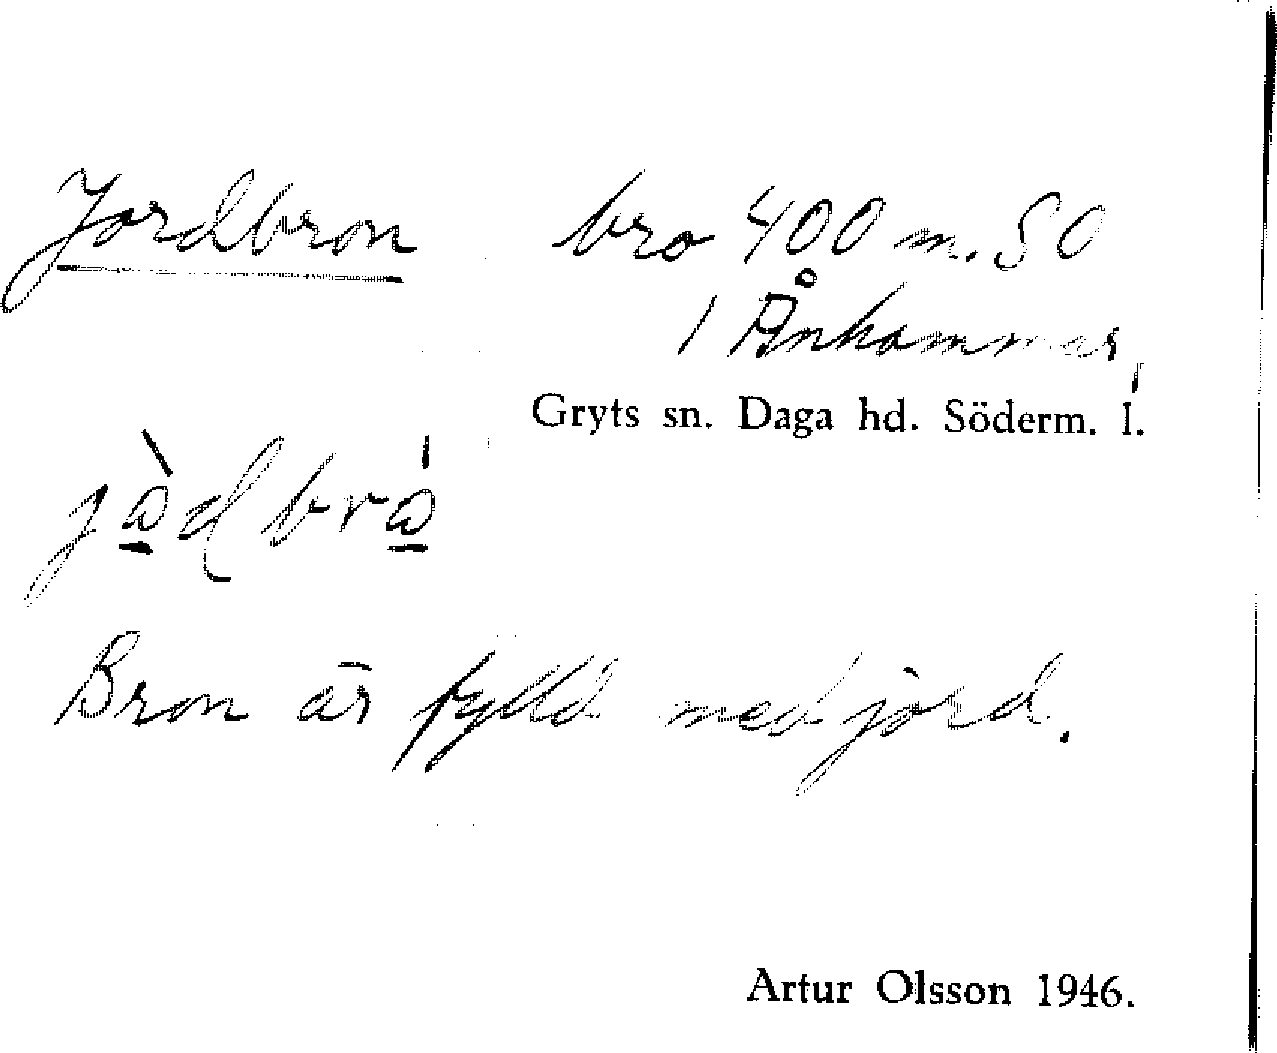 Jordbron bro 400 m. SO
1 Ånhammar,
Gryts sn. Daga hd. Söderm. l.
Bron är fylld med jord.
Artur Olsson 1946.